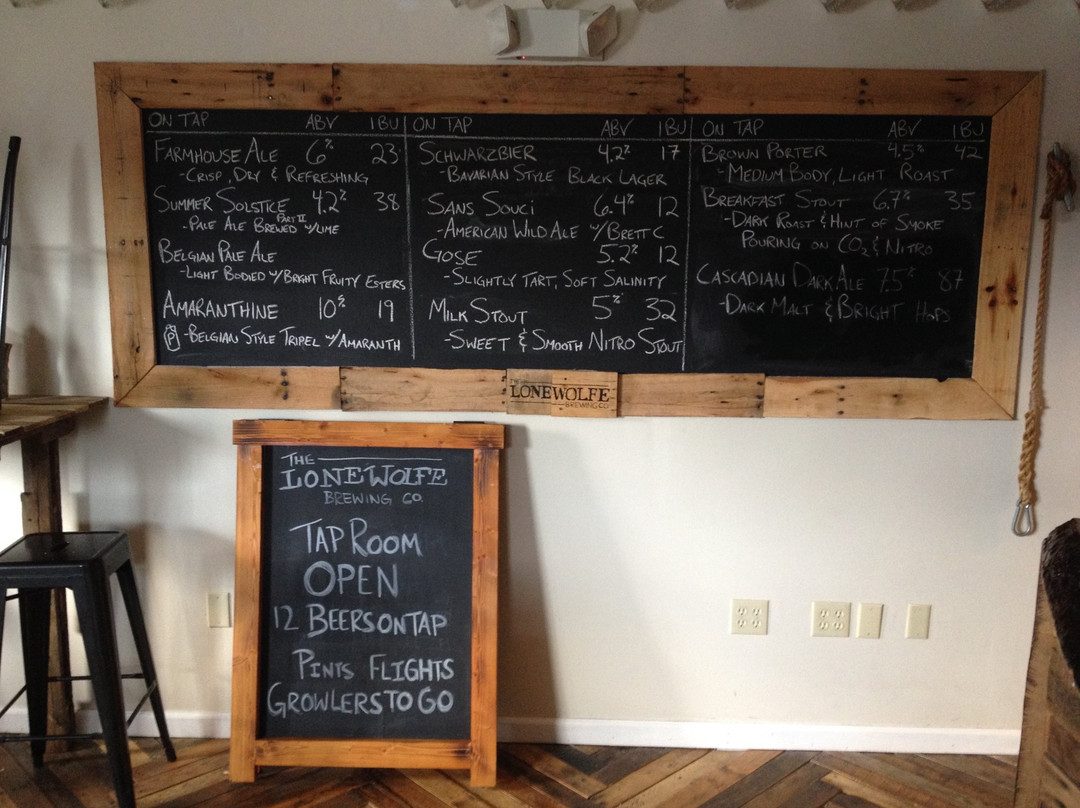 ON TAP ABV IBU
FARMHOUSE ALE 6% 23
-CRISP, DRY & REFRESHING
SUMMER SOLSTICE 4.2% 38
PART II
-PALE ALE BREWED W/LIME
BELGIAN PALE ALE
-LIGHT BODIED W/BRIGHT FRUITY ESTERS
AMARANTHINE 10% 19
-BELGIAN STYLE TRIPEL W/AMARANTH
ON TAP ABV IBU
SCHWARZBIER 4.2% 17
-BAVARIAN STYLE BLACK LAGER
SANS SOUCI 6.4% 12
-AMERICAN WILD ALE W/BRETT C
GOSE 5.2% 12
-SLIGHTLY TART, SOFT SALINITY
MILK STOUT 5% 32
-SWEET & SMOOTH NITRO STOUT
ON TAP ABV IBU
BROWN PORTER 4.5% 42
-MEDIUM BODY, LIGHT ROAST
BREAKFAST STOUT 6.7% 35
-DARK ROAST & HINT OF SMOKE
POURING ON CO2 & NITRO
CASCADIAN DARK ALE 7.5% 87
-DARK MALT & BRIGHT HOPS
LONEWOLFE
BREWING CO
THE
LONEWOLFE
BREWING CO.
TAP ROOM
OPEN
12 BEERS ON TAP
PINTS FLIGHTS
GROWLERS TO GO